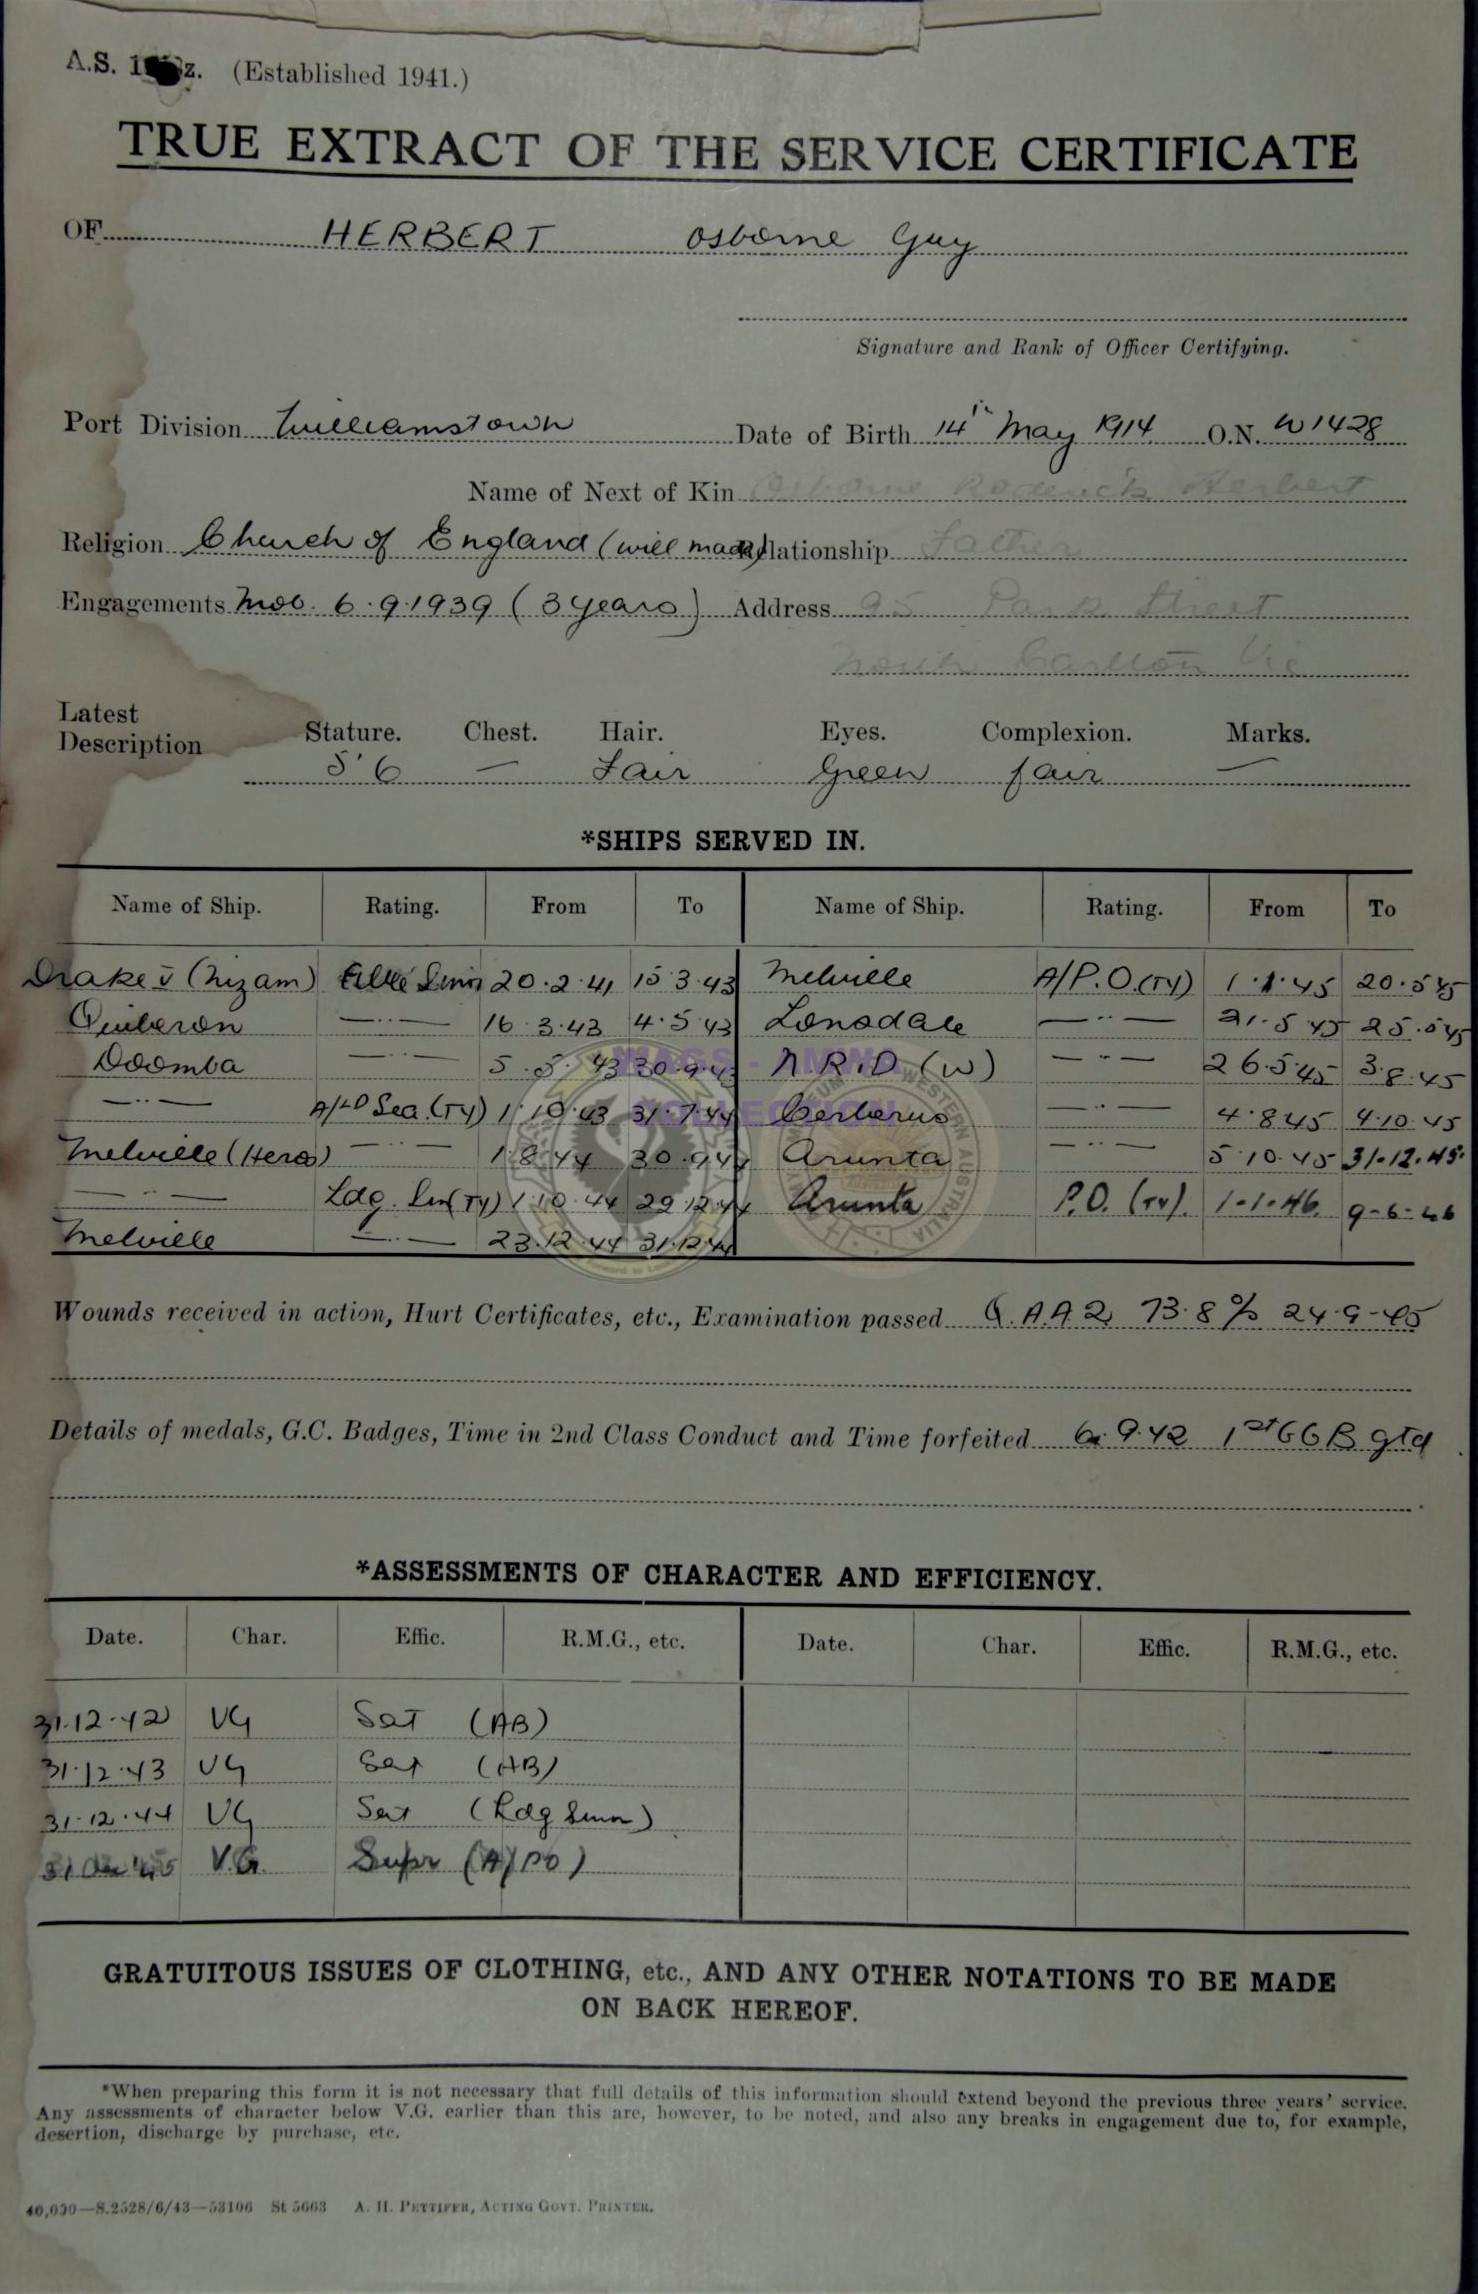 A.S. z. (Established 1941.)
TRUE EXTRACT OF THE SERVICE CERTIFICATE
OF HERBERT Osborne Guy
Signature and Rank of Officer Certifying.
Port Division Williamstown Date of Birth 14th May 1914 O.N. W1428
Name of Next of Kin Osborne Roderick Herbert
Religion Church of England (will made) Relationship Father
Engagements Mob. 6.9.1939 (3 years) Address 95 Park Street
North Carlton Vic
Latest
Description Stature. Chest. Hair. Eyes. Complexion. Marks.
5'6 — Fair Green fair —
*SHIPS SERVED IN.
Name of Ship. Rating. From To Name of Ship. Rating. From To
Drake V (Nizam) 20.2.41 15.3.43 Melville A/P.O.(TY) 1.1.45 20.5.45
Quiberon —..— 16.3.43 4.5.43 Lonsdale —..— 21.5.45 25.5.45
Doomba —..— 5.5.43 30.9.43 N.R.D (W) —..— 26.5.45 3.8.45
—..— A/LD Sea.(TY) 1.10.43 31.7.44 Cerberus —..— 4.8.45 4.10.45
Melville (Heros) —..— 1.8.44 30.9.44 Arunta —..— 5.10.45 31.12.45.
—..— Ldg. Smn(TY) 1.10.44 22.12.44 Arunta P.O. (TY). 1-1-46. 9-6-46
Melville —..— 23.12.44 31.12.44
WAGS - AMMO
COLLECTION
WESTERN AUSTRALIA
Wounds received in action, Hurt Certificates, etc., Examination passed Q.A.A.2 73.8% 24-9-45
Details of medals, G.C. Badges, Time in 2nd Class Conduct and Time forfeited 6.9.42 1st GCB gtd
*ASSESSMENTS OF CHARACTER AND EFFICIENCY.
Date. Char. Effic. R.M.G., etc. Date. Char. Effic. R.M.G., etc.
31.12.42 VG Sat (AB)
31.12.43 VG Sat (AB)
31.12.44 VG Sat (Ldg Smn)
31 Dec '45 V.G. Supr (A/PO)
GRATUITOUS ISSUES OF CLOTHING, etc., AND ANY OTHER NOTATIONS TO BE MADE
ON BACK HEREOF.
*When preparing this form it is not necessary that full details of this information should extend beyond the previous three years' service.
Any assessments of character below V.G. earlier than this are, however, to be noted, and also any breaks in engagement due to, for example,
desertion, discharge by purchase, etc.
40,000—S.2528/6/43—53106 St 5663 A. H. PETTIFER, ACTING GOVT. PRINTER.